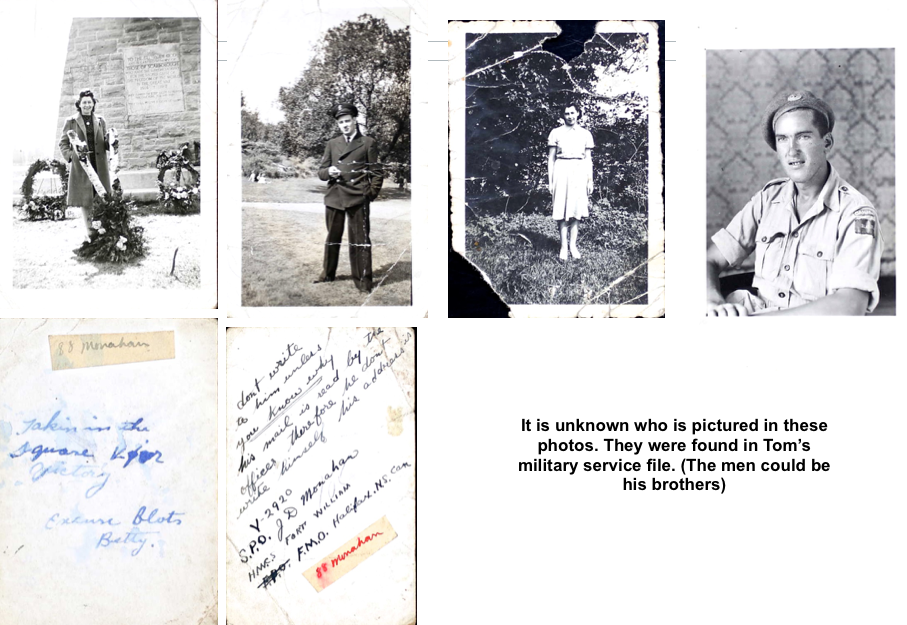 88 Monahan
Takin in the
square V for
Victory
Excuse Blots
Betty.
dont write
to him unless
you know why
his mail is read by the
officer therefore he dont
write himself his address is
V-2920
S.P.O. J D Monahan
HMCS FORT WILLIAM
F.M.O. Halifax. N.S. Can
88 Monahan
It is unknown who is pictured in these
photos. They were found in Tom's
military service file. (The men could be
his brothers)